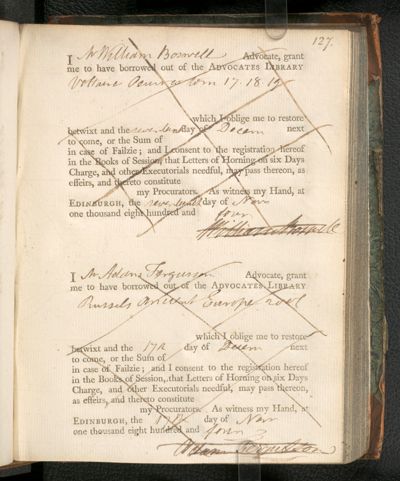 127.
I Mr William Boswell Advocate, grant
me to have borrowed out of the ADVOCATES LIBRARY
Voltaire Oeuvres tom 17. 18. 19
which I oblige me to restore
betwixt and the seventeenth day of Decem next
to come, or the Sum of
in case of Failzie; and I consent to the registration hereof
in the Books of Session, that Letters of Horning on six Days
Charge, and other Executorials needful, may pass thereon, as
effeirs, and thereto constitute
my Procurators. As witness my Hand, at
EDINBURGH, the seventeenth day of Novr
one thousand eight hundred and four
William Boswell
I Mr Adam Ferguson Advocate, grant
me to have borrowed out of the ADVOCATES LIBRARY
Russels Ancient Europe 2 vols
which I oblige me to restore
betwixt and the 17th day of Decem next
to come, or the Sum of
in case of Failzie; and I consent to the registration hereof
in the Books of Session, that Letters of Horning on six Days
Charge, and other Executorials needful, may pass thereon,
as effeirs, and thereto constitute
my Procurators. As witness my Hand, at
EDINBURGH, the 17th day of Novr
one thousand eight hundred and four
Adam Ferguson